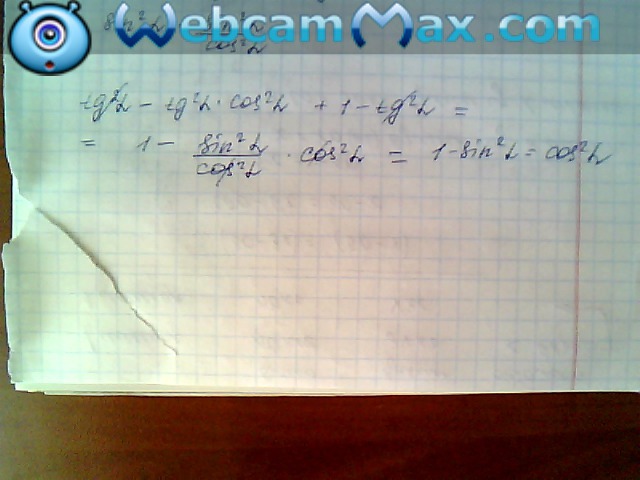 WebcamMax.com
sin²α
cos²α
tg²α - tg²α · cos²α + 1 - tg²α =
= 1 - sin²α/cos²α · cos²α = 1 - sin²α = cos²α